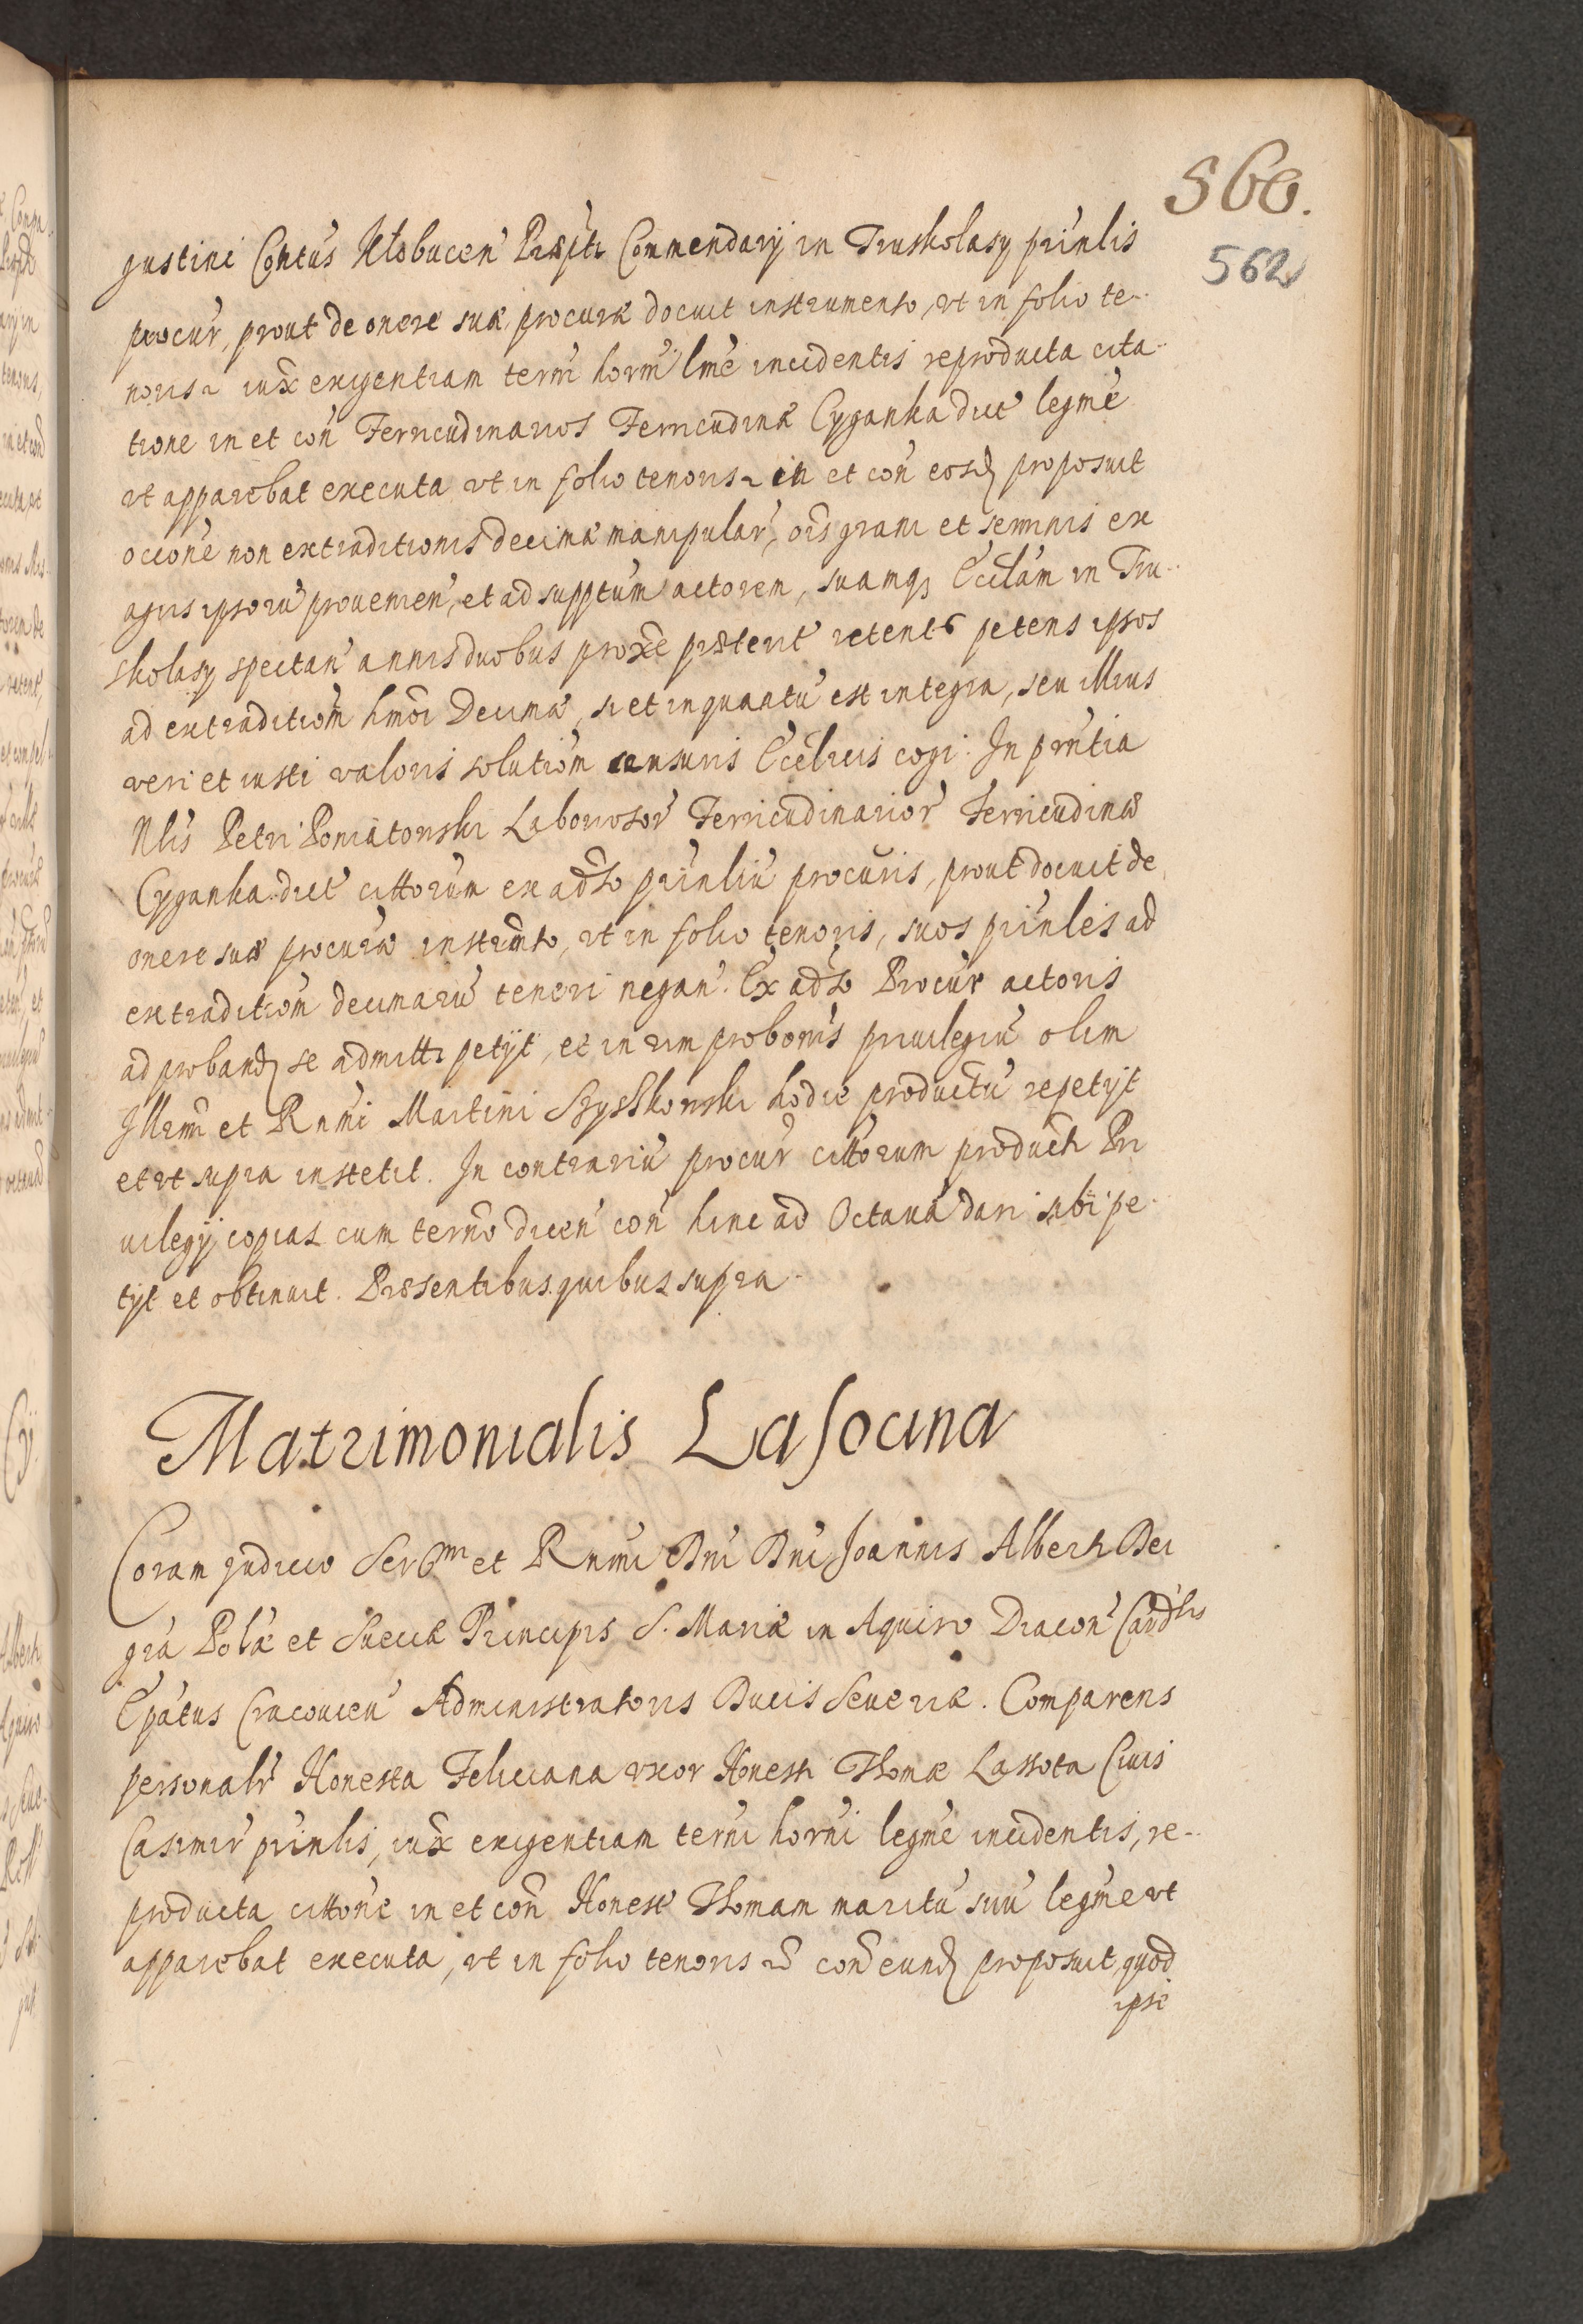 560.
562
gustini Contus Kłobucen Præpti Commendarij in Truskolasy prinlis
procur, prout de onere suæ procuræ docuit instrumento, vt in folio te-
noris iux exigentiam termi hormi lme incidentis reproducta cita-
tione in et con Ferricudinarios Ferricudinæ Cyganka dict legme
vt apparebat executa vt in folio tenoris in et con eosd proposuit
occone non extraditionis decimæ manipular, ois grani et seminis ex
agris ipsoru prouenien, et ad supptum actorem, suamq Ecclam in Tru-
skolasy spectan annis duobus proxe præterit retent petens ipsos
ad extraditiom hmoi Decimæ, si et in quantu est integra, seu illius
veri et iusti valoris solutiom censuris Ecclicis cogi. In pntia
Nlis Petri Poniatowski Laboriosor Ferricudinarior Ferricudinæ
Cyganka dict cittorum ex adso prinliu procuris, prout docuit de
onere suæ procuræ instrmto, vt in folio tenoris, suos prinles ad
extraditiom decimaru teneri negan. Ex adso Procur actoris
ad proband se admitti petijt, et in vim probonis priuilegiu olim
Illrmi et Rnmi Martini Szyszkowski hodie productu repetijt
et vt supra institit. In contrariu procur cittorum producti Pri
uilegij copias cum termo dicen con hinc ad Octaua dari sibi pe-
tijt et obtinuit. Præsentibus quibus supra
Matrimonialis Lasocina
Coram Judicio Sermi et Rnmi Dni Dni Joannis Alberti Dei
gra Polæ et Sueciæ Principis S. Mariæ in Aquiro Diacon Cardlis
Epatus Cracouien Administratoris Ducis Seueriæ. Comparens
personalr Honesta Feliciana vxor Honesti Thomæ Lassota Ciuis
Casimir prinlis, iux exigentiam termi hormi legme incidentis, re-
producta cittone in et con Honest Thomam maritu suu legme vt
apparebat executa, vt in folio tenoris con eund proposuit, quod
ipse